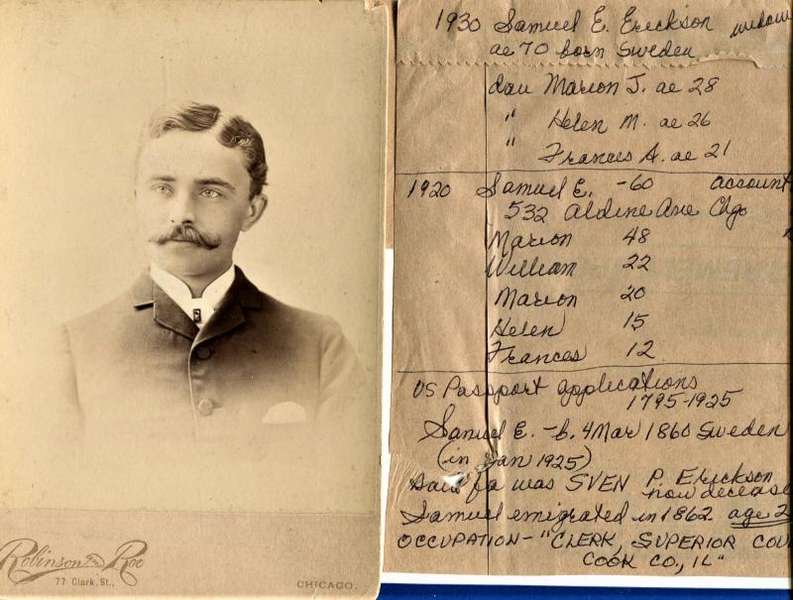 Robinson & Roe
77 Clark St.,
CHICAGO.
1930 Samuel E. Erickson widow
ae 70 born Sweden
dau Marion J. ae 28
" Helen M. ae 26
" Frances A. ae 21
1920 Samuel E. -60 account
532 Aldine Ave Chgo
Marion 48
William 22
Marion 20
Helen 15
Frances 12
US Passport applications
1795-1925
Samuel E. -b. 4 Mar 1860 Sweden
(in Jan 1925)
Said fa was SVEN P. Erickson
now decease
Samuel emigrated in 1862 age 2
OCCUPATION - "CLERK, SUPERIOR COU
COOK CO., IL"